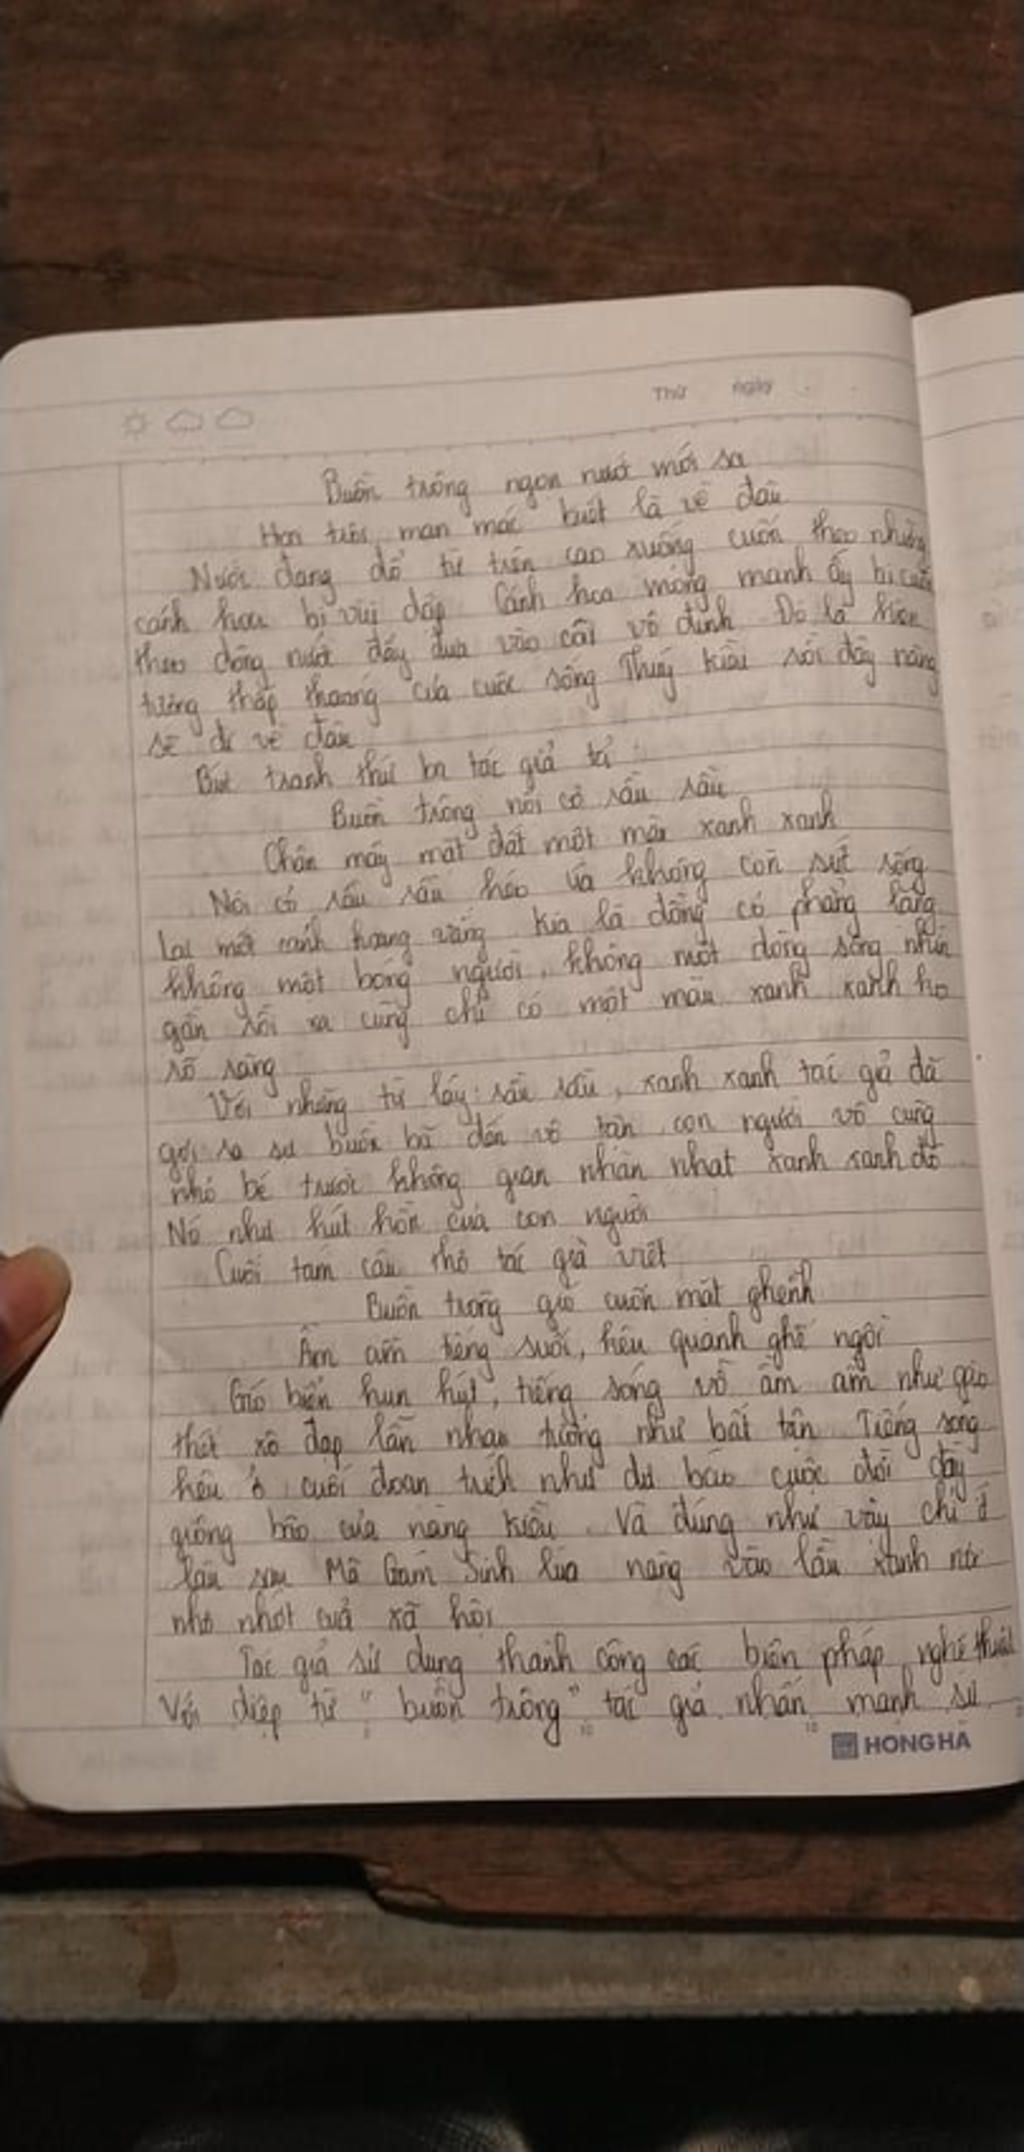 Thứ ngày
Buồn trông ngọn nước mới sa
Hoa trôi man mác biết là về đâu
Nước đang đổ từ trên cao xuống cuốn theo những
cánh hoa bị vùi dập. Cánh hoa mỏng manh ấy bị cuốn
theo dòng nước đẩy đưa vào cõi vô định. Đó là hiện
tượng thấp thoáng của cuộc sống Thuý Kiều rồi đây nàng
sẽ đi về đâu
Bức tranh thứ ba tác giả tả
Buồn trông nội cỏ rầu rầu
Chân mây mặt đất một màu xanh xanh
Nội cỏ rầu rầu héo úa không còn sức sống
Lại một cảnh hoang vắng. Kia là đồng cỏ phẳng lặng
không một bóng người, không một dòng sông nhìn
gần rồi xa cũng chỉ có một màu xanh xanh
rõ ràng
Với những từ láy: rầu rầu, xanh xanh tác giả đã
gợi ra sự buồn bã đến vô tận, con người vô cùng
nhỏ bé trước không gian nhàn nhạt xanh xanh đó
Nó như hút hồn của con người
Cuối tám câu thơ tác giả viết
Buồn trông gió cuốn mặt ghềnh
Ầm ầm tiếng suối, kêu quanh ghế ngồi
Gió biển hun hút, tiếng sóng vỗ ầm ầm như gào
thét xô đạp lẫn nhau tưởng như bất tận. Tiếng sóng
kêu ở cuối đoạn trích như dự báo cuộc đời đầy
giông bão của nàng Kiều. Và đúng như vậy chỉ ít
lâu sau Mã Giám Sinh lừa nàng vào lầu xanh nơi
nhơ nhớt của xã hội
Tác giả sử dụng thành công các biện pháp nghệ thuật
Với điệp từ "buồn trông" tác giả nhấn mạnh sự
HONG HA